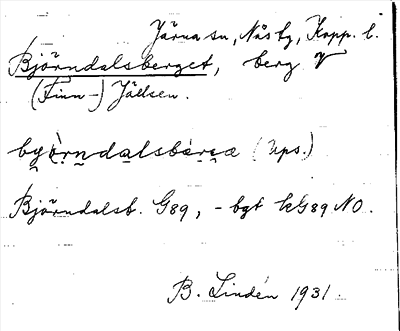 Järna sn, Nås tg, Kopp. l.
Björndalsberget, berg V
(Finn-) Jällsen.
(Ups.)
Björndalsb. G89, - bgt kG89 NO.
B. Lindén 1931.